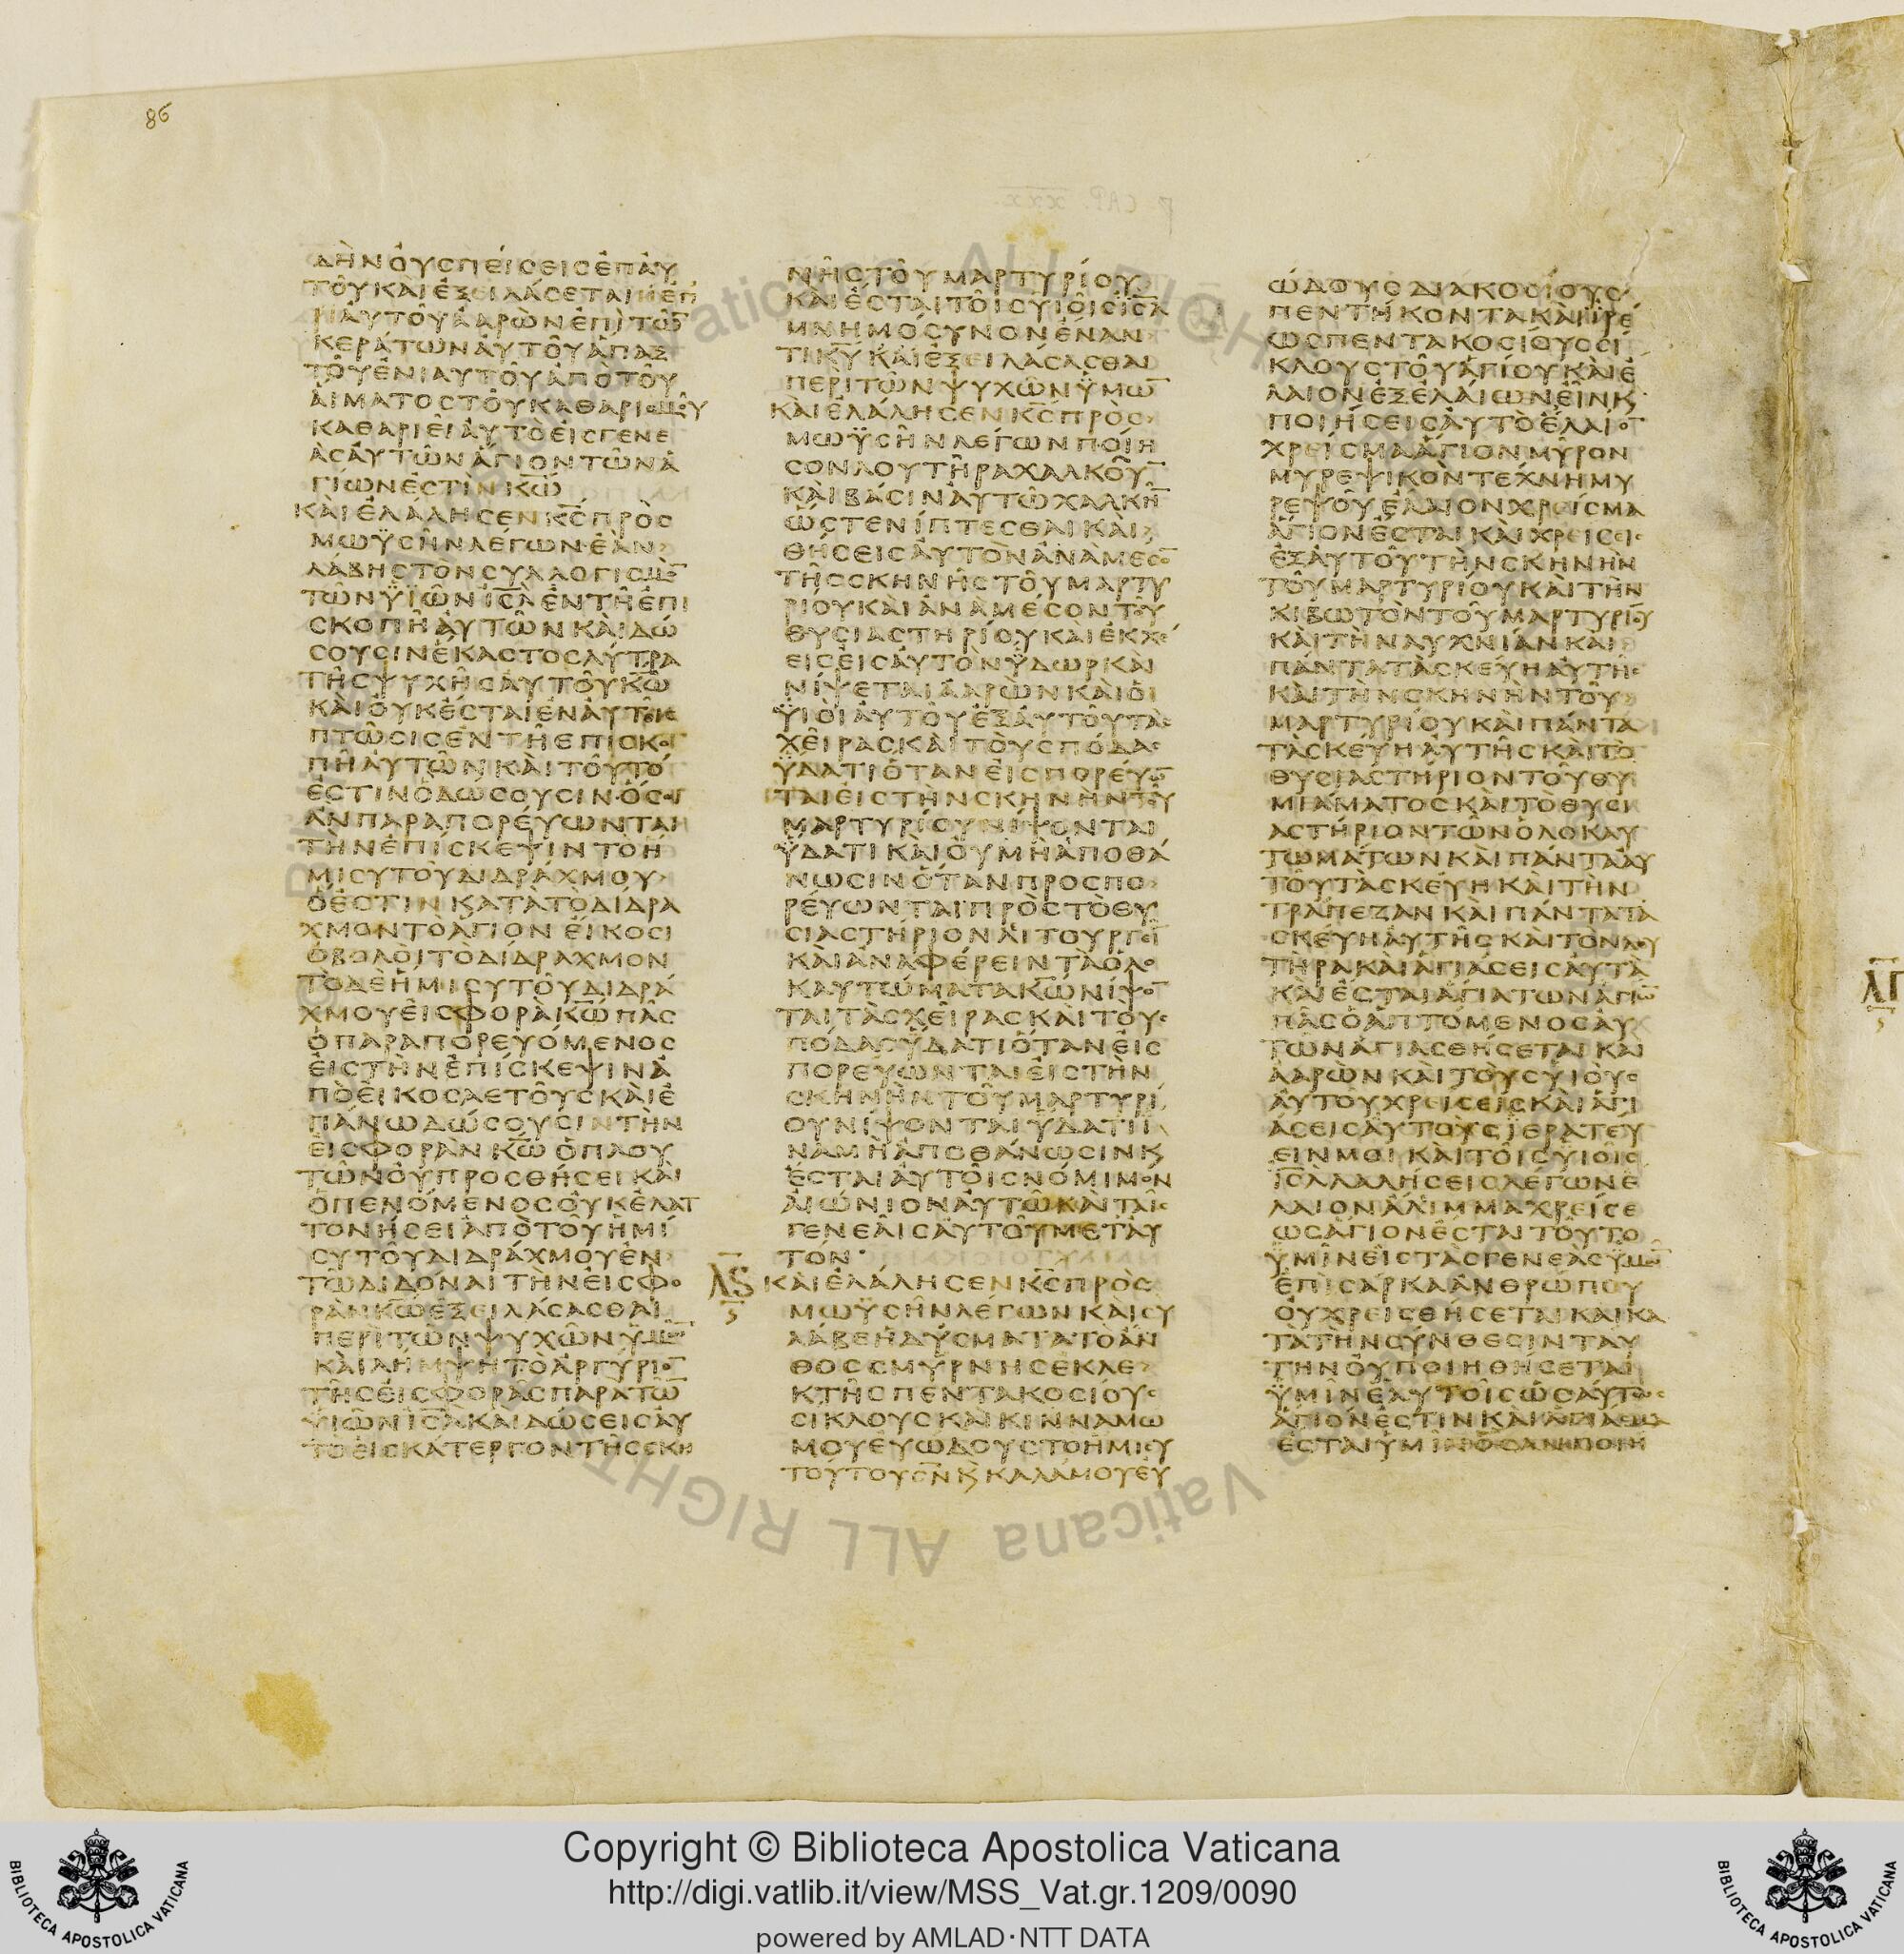 86
δὴν οὐ σπείσεις ἐπ αὐ
τοῦ καὶ ἐξειλάσεται ἐπ
αὐτοῦ ἀαρὼν ἐπὶ τῶ̄
κεράτων αὐτοῦ ἅπαξ
τοῦ ἐνιαυτοῦ ἀπὸ τοῦ
αἵματος τοῦ καθαρισμοῦ
καθαριεῖ αὐτὸ εἰς γενε
ὰς αὐτῶν ἅγιον τῶν ἁ
γίων ἐστὶν κ̅ω̅
καὶ ἐλάλησεν κ̅ς̅ πρὸς
μωϋσῆν λέγων ἐὰν
λάβῃς τὸν συλλογισμὸ̄
τῶν ϋἱῶν ι̅σ̅λ̅ ἐν τῇ ἐπι
σκοπῇ αὐτῶν καὶ δώ
σουσιν ἕκαστος λύτρα
τῆς ψυχῆς αὐτοῦ κ̅ω̅
καὶ οὐκ ἔσται ἐν αὐτοῖς
πτῶσις ἐν τῇ ἐπισκο
πῇ αὐτῶν καὶ τοῦτό
ἐστιν ὃ δώσουσιν ὅσοι
ἂν παραπορεύωνται
τὴν ἐπίσκεψιν τὸ ἥ
μισυ τοῦ διδράχμου
ὅ ἐστιν κατὰ τὸ δίδρα
χμον τὸ ἅγιον εἴκοσι
ὀβολοὶ τὸ δίδραχμον
τὸ δὲ ἥμισυ τοῦ διδρά
χμου εἰσφορὰ κ̅ω̅ πᾶς
ὁ παραπορευόμενος
εἰς τὴν ἐπίσκεψιν ἀ
πὸ εἰκοσαετοῦς καὶ ἐ
πάνω δώσουσιν τὴν
εἰσφορὰν κ̅ω̅ ὁ πλου
τῶν οὐ προσθήσει καὶ
ὁ πενόμενος οὐκ ἐλατ
τονήσει ἀπὸ τοῦ ἡμί
συ τοῦ διδράχμου ἐν
τῷ διδόναι τὴν εἰσφο
ρὰν κ̅ω̅ ἐξειλάσασθαι
περὶ τῶν ψυχῶν ϋμῶ̄
καὶ λήμψῃ τὸ ἀργύριο̄
τῆς εἰσφορᾶς παρὰ τῶ̄
υἱῶν ι̅σ̅λ̅ καὶ δώσεις αὐ
τὸ εἰς κάτεργον τῆς σκη
νῆς τοῦ μαρτυρίου
καὶ ἔσται τοῖς υἱοῖς ι̅σ̅λ̅
μνημόσυνον ἔναν
τι κ̅υ̅ καὶ ἐξειλάσασθαι
περὶ τῶν ψυχῶν ϋμῶ̄
καὶ ἐλάλησεν κ̅ς̅ πρὸς
μωϋσῆν λέγων ποίη
σον λουτῆρα χαλκοῦ̄
καὶ βάσιν αὐτῷ χαλκῆ̄
ὥστε νίπτεσθαι καὶ
θήσεις αὐτὸν ἀνὰ μέσο̄
τῆς σκηνῆς τοῦ μαρτυ
ρίου καὶ ἀνὰ μέσον τοῦ
θυσιαστηρίου καὶ ἐκχε
εῖς εἰς αὐτὸν ὕδωρ καὶ
νίψεται ἀαρὼν καὶ οἱ
ϋἱοὶ αὐτοῦ ἐξ αὐτοῦ τὰς
χεῖρας καὶ τοὺς πόδας
ὕδατι ὅταν εἰσπορεύω̄
ται εἰς τὴν σκηνὴν τοῦ
μαρτυρίου νίψονται
ὕδατι καὶ οὐ μὴ ἀποθά
νωσιν ὅταν προσπο
ρεύωνται πρὸς τὸ θυ
σιαστήριον λιτουργεῖ̄
καὶ ἀναφέρειν τὰ ὁλο
καυτώματα κ̅ω̅ νίψο̄
ται τὰς χεῖρας καὶ τοὺς
πόδας ὕδατι ὅταν εἰς
πορεύωνται εἰς τὴν
σκηνὴν τοῦ μαρτυρί
ου νίψονται ὕδατι ἵ
να μὴ ἀποθάνωσιν κ̣
ἔσται αὐτοῖς νόμιμον
αἰώνιον αὐτῷ καὶ ταῖς
γενεαῖς αὐτοῦ μετ αὐ
τόν
Λ̅Ϛ̅ καὶ ἐλάλησεν κ̅ς̅ πρὸς
μωϋσῆν λέγων καὶ σὺ
λάβε ἡδύσματα τὸ ἄν
θος σμύρνης ἐκλε
κτῆς πεντακοσίους
σίκλους καὶ κινναμώ
μου εὐώδους τὸ ἥμισυ
τούτου σ̅ν̅ κ̣ καλάμου εὐ
ώδους διακοσίους
πεντήκοντα καὶ ἴρε
ως πεντακοσίους σί
κλους τοῦ ἁγίου καὶ ἔ
λαιον ἐξ ἐλαίων εἲν κ̣
ποιήσεις αὐτὸ ἔλαιο̄
χρεῖσμα ἅγιον μύρον
μυρεψικὸν τέχνῃ μυ
ρεψοῦ ἔλαιον χρεῖσμα
ἅγιον ἔσται καὶ χρείσεις
ἐξ αὐτοῦ τὴν σκηνὴν
τοῦ μαρτυρίου καὶ τὴν
κιβωτὸν τοῦ μαρτυρίου
καὶ τὴν λυχνίαν καὶ
πάντα τὰ σκεύη αὐτῆς
καὶ τὴν σκηνὴν τοῦ
μαρτυρίου καὶ πάντα
τὰ σκεύη αὐτῆς καὶ τὸ
θυσιαστήριον τοῦ θυ
μιάματος καὶ τὸ θυσι
αστήριον τῶν ὁλοκαυ
τωμάτων καὶ πάντα αὐ
τοῦ τὰ σκεύη καὶ τὴν
τράπεζαν καὶ πάντα τὰ
σκεύη αὐτῆς καὶ τὸν λου
τῆρα καὶ ἁγιάσεις αὐτὰ
καὶ ἔσται ἅγια τῶν ἁγίω̄
πᾶς ὁ ἁπτόμενος αὐ
τῶν ἁγιασθήσεται καὶ
ἀαρὼν καὶ τοὺς υἱοὺς
αὐτοῦ χρείσεις καὶ ἁγι
άσεις αὐτοὺς ἱερατεύ
ειν μοι καὶ τοῖς υἱοῖς
ι̅σ̅λ̅ λαλήσεις λέγων ἔ
λαιον ἄλιμμα χρείσε
ως ἅγιον ἔσται τοῦτο
ὑμῖν εἰς τὰς γενεὰς ϋμῶ̄
ἐπὶ σάρκα ἀνθρώπου
οὐ χρεισθήσεται καὶ κα
τὰ τὴν σύνθεσιν ταύ
την οὐ ποιηθήσεται
ϋμῖν ἑαυτοῖς ὡσαύτως
ἅγιόν ἐστιν καὶ ἁγίασμα
ἔσται ὑμῖν ὃς ἂν ποιή
Copyright © Biblioteca Apostolica Vaticana
http://digi.vatlib.it/view/MSS_Vat.gr.1209/0090
powered by AMLAD·NTT DATA
BIBLIOTECA APOSTOLICA VATICANA
BIBLIOTECA APOSTOLICA VATICANA